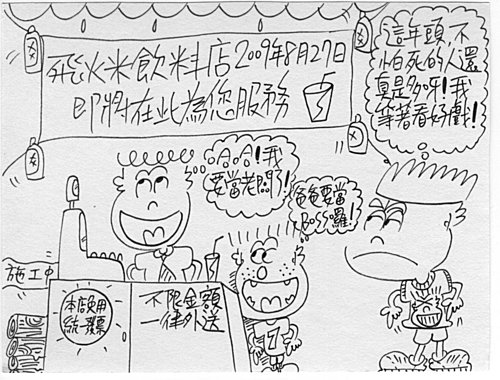 飛火米飲料店2009年8月27日
即將在此為您服務
這年頭不
怕死的人還
真是多呀!我
等著看好戲!
哈哈!我
要當老闆了!
爸爸要當
BOSS囉!
施工中
本店使用
統一發票
不限金額
一律外送